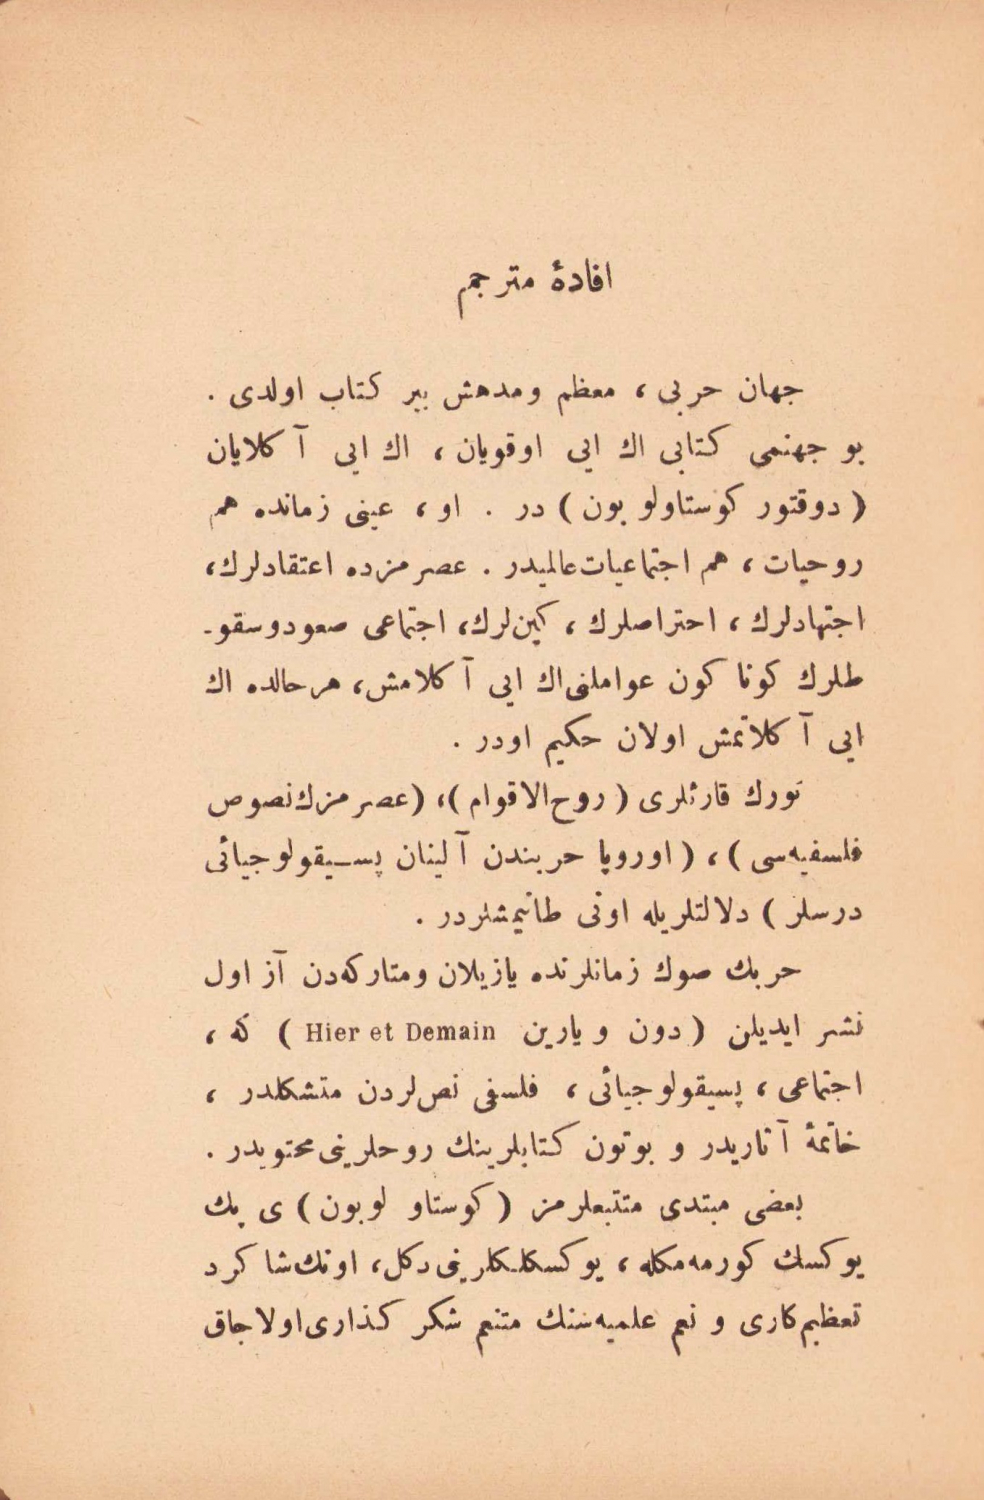 افادهٔ مترجم
جهان حربی ، معظم ومدهش بیر كتاب اولدی .
بو جهنمی كتابی اك ایی اوقویان ، اك ایی آ كلایان
( دوقتور كوستاولو بون ) در . او ، عینی زمانده هم
روحیات ، هم اجتماعیات عالمیدر . عصرمزده اعتقادلرك،
اجتهادلرك ، احتراصلرك ، كین‌لرك، اجتماعی صعودوسقو-
طلرك كونا كون عواملنی اك ایی آ كلامش، هرحالده اك
ایی آ كلاتمش اولان حكیم اودر .
تورك قارئلری ( روح‌الاقوام )، (عصرمزك نصوص
فلسفیه‌سی ) ، ( اوروپا حربندن آلینان پسیقولوجیائی
درسلر ) دلالتلریله اونی طانیمشلردر .
حربك صوك زمانلرنده یازیلان ومتاركه‌دن آز اول
نشر ایدیلن ( دون و یارین Hier et Demain ) كه ،
اجتماعی ، پسیقولوجیائی ، فلسفی نص‌لردن متشكلدر ،
خاتمهٔ آثاریدر و بوتون كتابلرینك روحلرینی محتویدر .
بعضی مبتدی متتبعلرمز ( كوستاو لوبون ) ی پك
یوكسك كورمه‌مكله ، یوكسكلكلرینی دكل، اونك شا كرد
تعظیم‌كاری و نعم علمیه‌سنك متنعم شكر كذاری اولاجاق